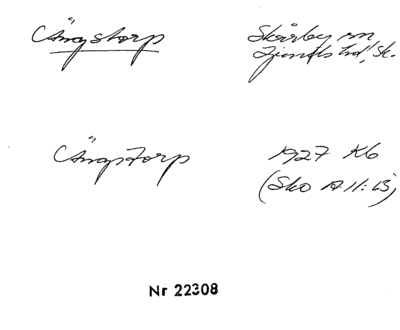 Ängstorp
Skårby sn
Ljunits hd, Sk.
Ängstorp
1927 Kb
(Sko A II:13)
Nr 22308